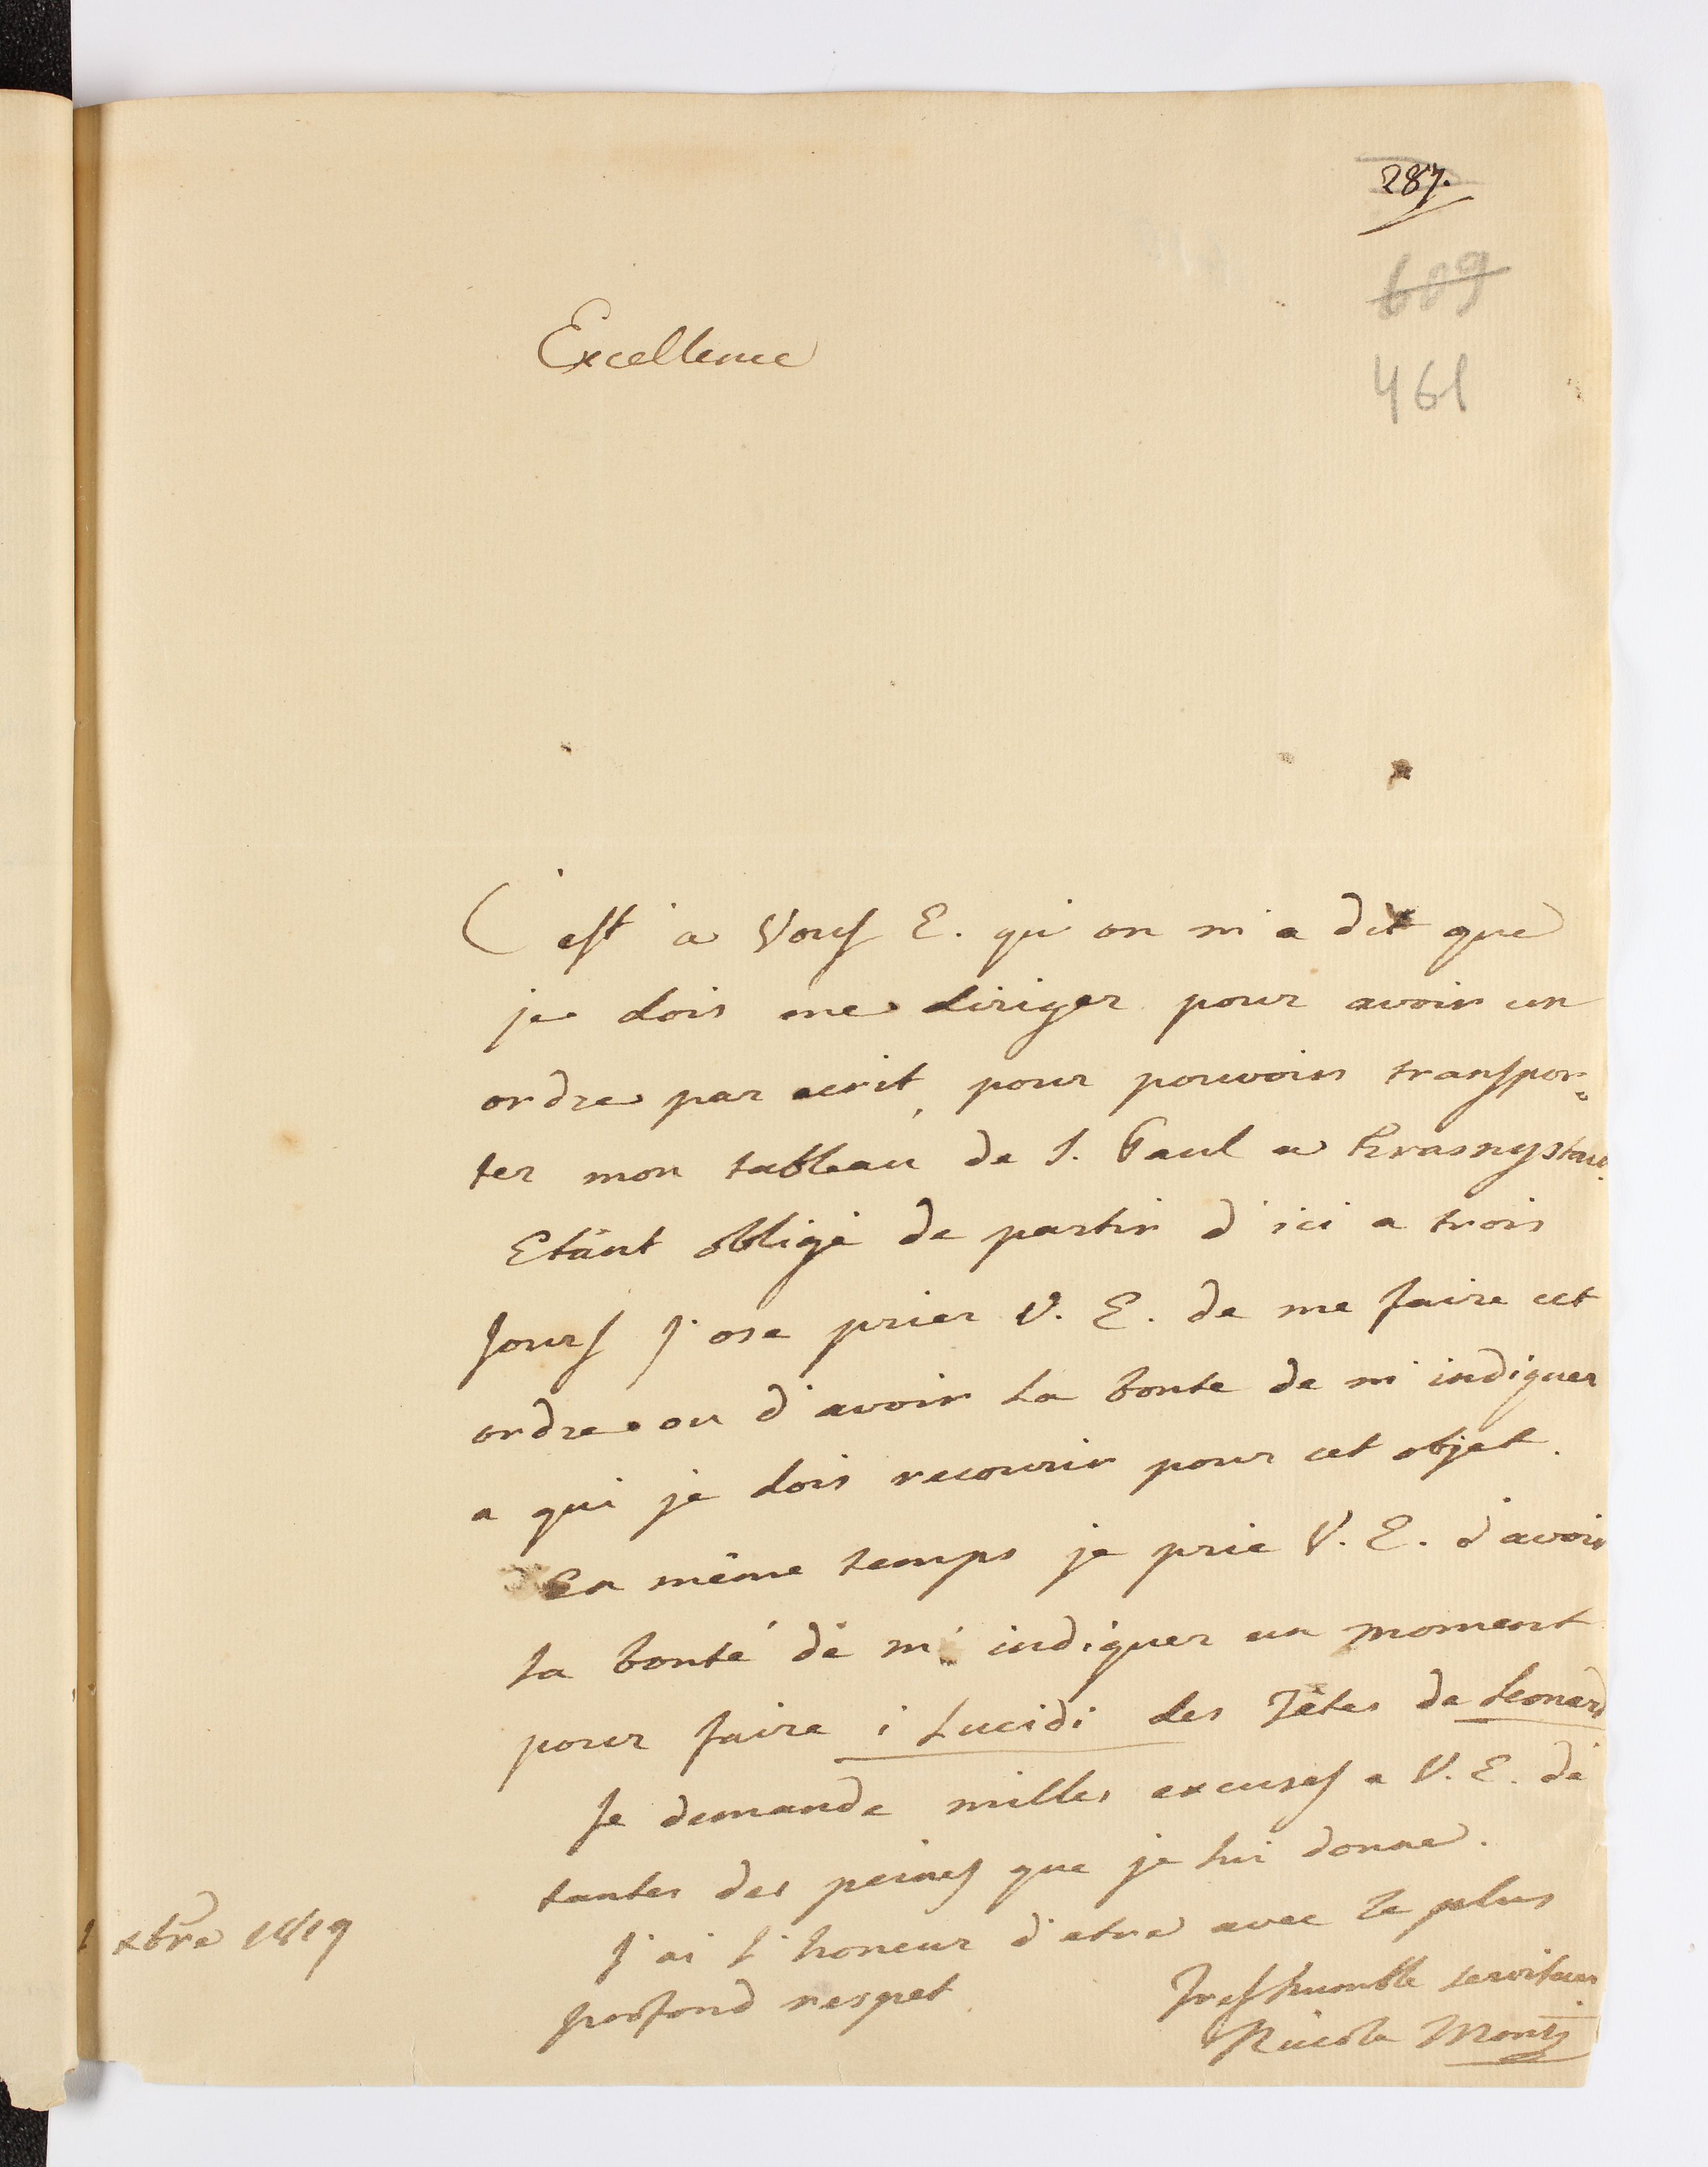 287.
609
461
Excellence
C'est a Vous E. qu'on m'a dit que
je dois me diriger pour avoir un
ordre par ecrit, pour pouvoir transpor=
ter mon tableau de S. Paul a Krasnystaw.
Etant obligé de partir d'ici a trois
jours j'ose prier V. E. de me faire cet
ordre ou d'avoir la bonte de m'indiquer
a qui je dois recourir pour cet objet.
En même temps je prie V. E. d'avoir
la bonté de m'indiquer un moment
pour faire i Lucidi des Têtes de Leonard
Je demande milles excuses a V. E. de
tantes des peines que je lui donne.
J'ai l'honeur d'etre avec le plus
profond respet
xbre 1819
Tres humble serviteur
Nicola Monti